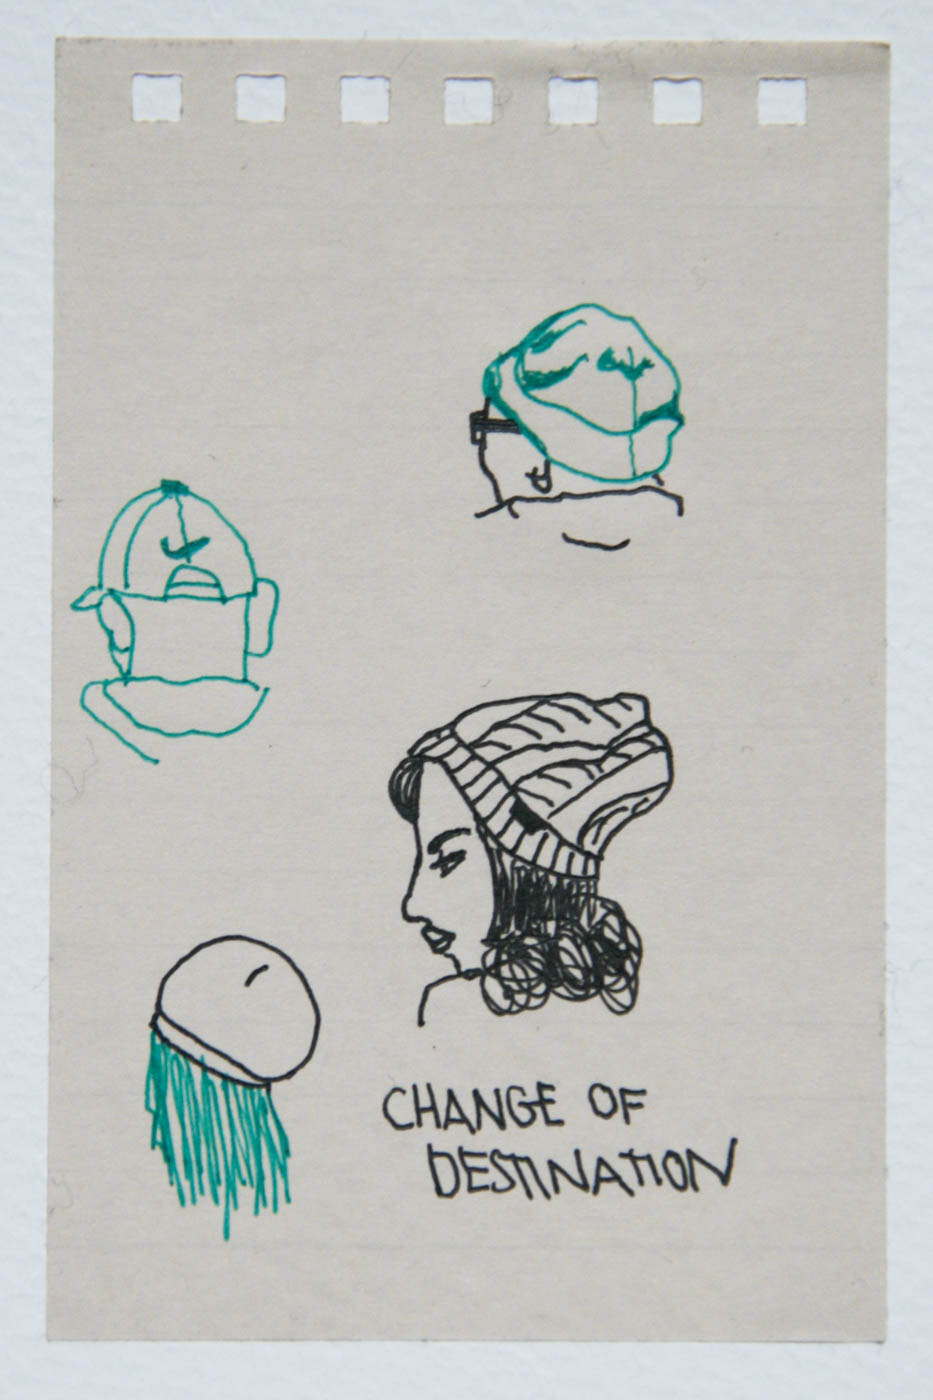 CHANGE OF
DESTINATION